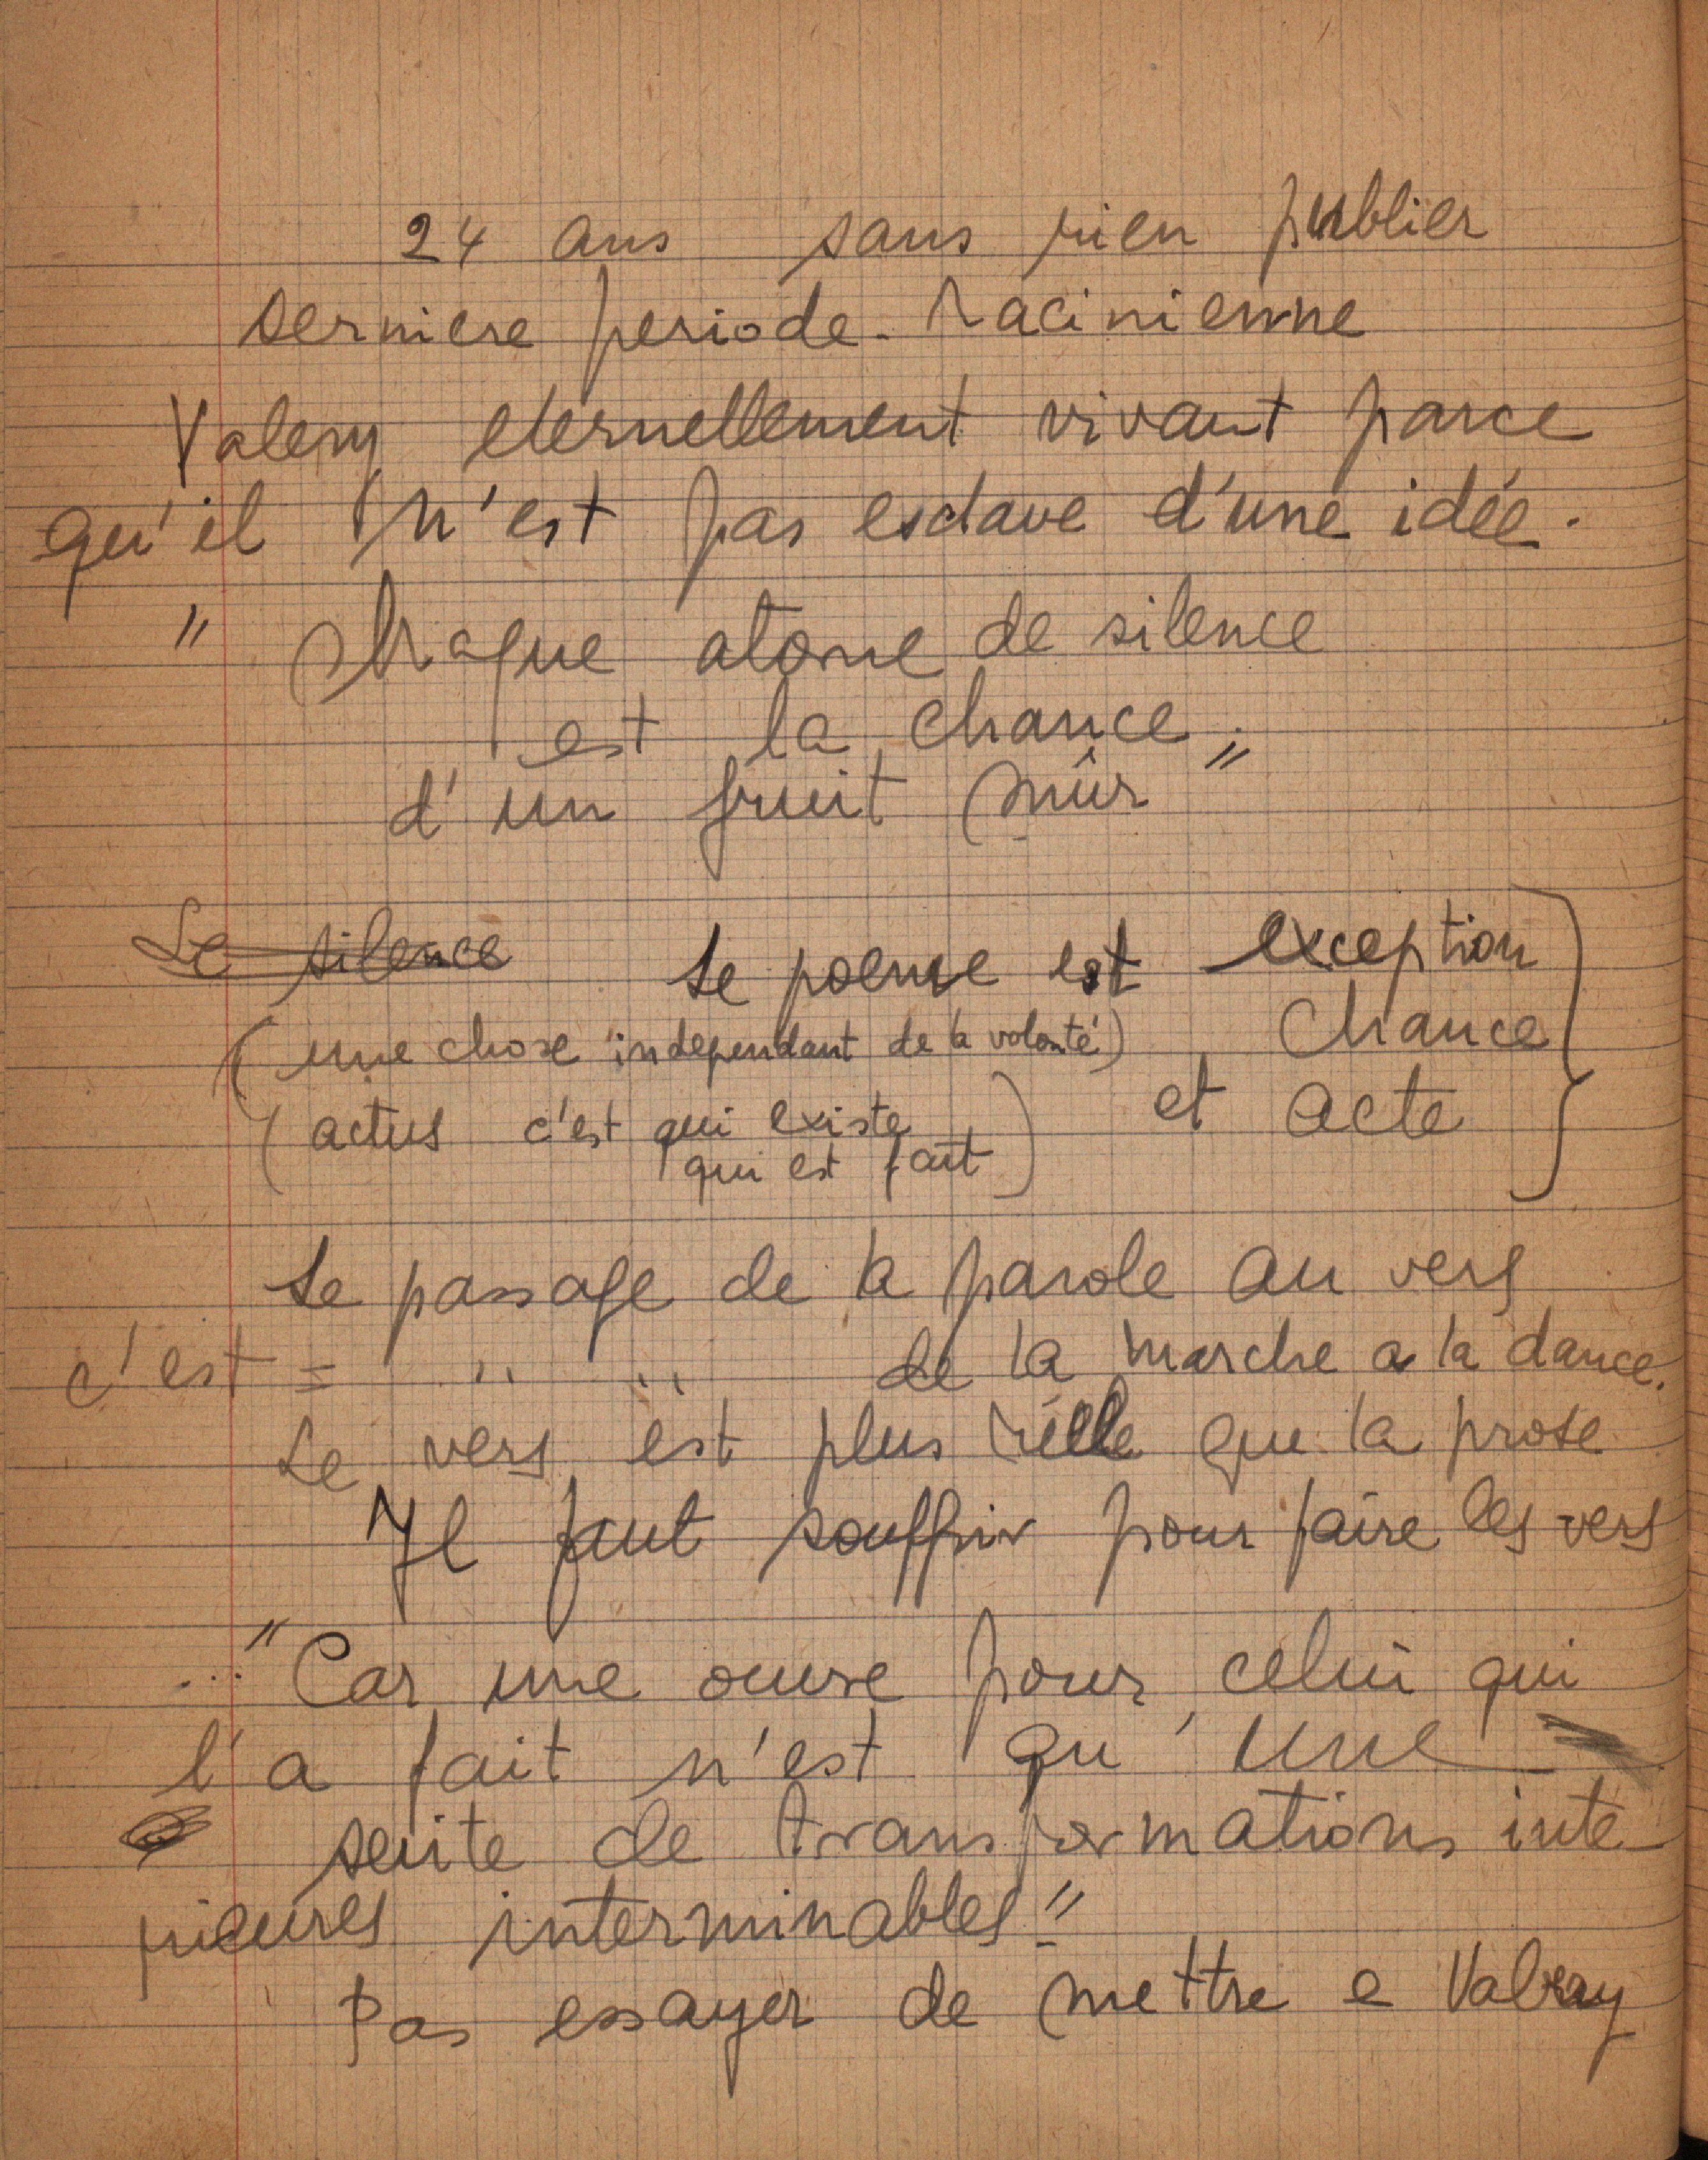 24 ans sans rien publier
derniere periode - racinienne
Valery eternellement vivant parce
qu'il n'est pas esclave d'une idée.
" Chaque atome de silence
est la chance
d'un fruit mûr "
Le silence Le poeme est exception
(une chose independant de la volonté) Chance
(actus c'est qui existe et acte
qui est fait)
Le passage de la parole au vers
c'est = " " de la marche a la dance.
Le vers est plus réelle que la prose
Il faut souffrir pour faire les vers
..." Car une ouvre pour celui qui
l'a fait n'est qu'une
suite de transformations inte
rieures interminables"
Pas essayer de mettre e Valery